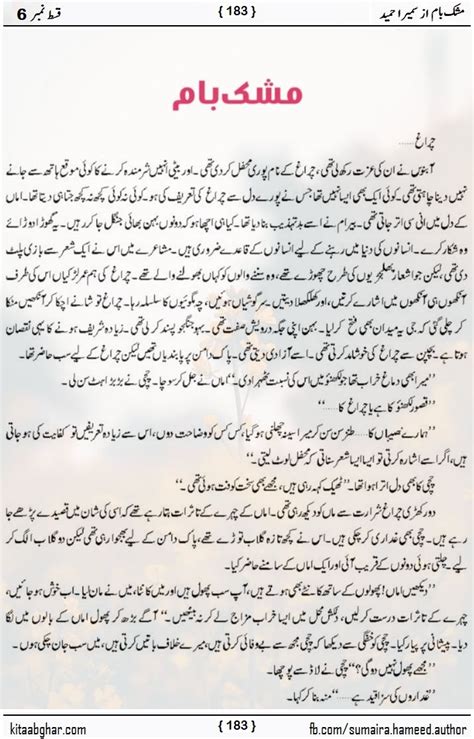 قسط نمبر 6 { 183 } مشک بام از سمیرا حمید
مشک بام
چراغ......
آبنوس نے ان کی عزت رکھ لی تھی، چراغ کے نام پوری محفل کر دی تھی۔ اور بیٹی انہیں شرمندہ کرنے کا کوئی موقع ہاتھ سے جانے
نہیں دینا چاہتی تھی۔ کوئی ایک بھی ایسا نہیں تھا جس نے پورے دل سے چراغ کی تعریف کی ہو۔ کوئی نہ کوئی کچھ نہ کچھ جتا ہی دیتا تھا۔ اماں
کے دل میں انی سی اتر جاتی تھی۔ بیرام نے اسے بدتہذیب بنا دیا تھا۔ کیا ہی اچھا ہو کہ دونوں بہن بھائی جنگل جا کر رہیں۔ یہ گھوڑا دوڑائے
وہ شکار کرے۔ انسانوں کی دنیا میں رہنے کے لیے انسانوں کے قاعدے ضروری ہیں۔ مشاعرے میں اس نے ایک شعر سے بازی پلٹ
دی تھی، لیکن جو اشعار پھلجھڑیوں کی طرح چھوڑے تھے، وہ سننے والوں کو کہاں بھولنے والے تھے۔ چراغ کی ہم عمر لڑکیاں اس کی طرف
آنکھوں ہی آنکھوں میں اشارے کرتیں، اور کھلکھلا دیتیں۔ سرگوشیاں ہوئیں، چہ مگوئیوں کا سلسلہ رہا۔ چراغ تو شانے اچکا کر آنکھیں مٹکا
کر چلی گئی کہ جی یہ میدان بھی فتح کر لیا۔ بہن اپنی جگہ درویش صفت تھی۔ جنگجو پسند کر لی تھی۔ زیادہ شریف ہونے کا یہی نقصان
ہوتا ہے۔ بچپن سے چراغ کی خوشامد کرتی تھی۔ اسے آزادی دیتی تھی۔ پاک دامن پر پابندیاں تھیں، لیکن چراغ کے لیے سب حاضر تھا۔
”میرا بھی دماغ خراب تھا جو لکھنؤ میں اس کی نسبت ٹھہرا دی۔“ اماں نے جل کر سوچا۔ چچی نے بڑبڑاہٹ سن لی۔
”قصور لکھنؤ کا ہے یا چراغ کا......“
”ہمارے نصیبوں کا...... طنز سن سن کر میرا سینہ چھلنی ہو گیا، کس کس کو وضاحت دوں، اس سے زیادہ تعریفیں تو کفایت کی ہو جاتی
ہیں، اگر اسے اشارہ کرتی تو ایسا ایسا شعر سناتی کہ محفل لوٹ لیتی۔“
چچی کا بھی دل اترا ہوا تھا۔ ”ٹھیک کہہ رہی ہیں، مجھے بھی سخت کوفت ہوئی تھی۔“
دور کھڑی چراغ شرارت سے ماں کو دیکھ رہی تھی۔ اماں کے چہرے کے تاثرات بتا رہے تھے کہ اسی کی شان میں قصیدے پڑھے جا
رہے ہیں۔ چچی بھی غداری کر چکی ہیں۔ اس نے کچھ تازہ گلاب توڑے تھے، پاک دامن کے لیے بھجوا رہی تھی لیکن دو گلاب الگ کر
لیے۔ چلتی ہوئی دونوں کے قریب آئی اور ایک اماں کے سامنے حاضر کیا۔
”دیکھیں اماں! پھولوں کے ساتھ کانٹے بھی ہوتے ہیں، آپ سب پھول ہیں اور میں کانٹا، میں نے مان لیا۔ اب خوش ہو جائیں،
چہرے کے تاثرات درست کر لیں، جشن محفل میں ایسا خراب مزاج لے کر نہ بیٹھیں۔“ آگے بڑھ کر پھول اماں کے بالوں میں لگا
دیا۔ پیشانی پر پیار کیا۔ چچی کو خفگی سے دیکھا کہ چچی مجھ سے بے وفائی کرتی ہیں، میرے خلاف باتیں کرتی ہیں، میں سب جان چکی ہوں۔
”مجھے پھول نہیں دو گی؟“ چچی نے لاڈ سے پوچھا۔
”غداروں کی سزا قید ہے......“ منہ بنا کر کہا۔
kitaabghar.com { 183 } fb.com/sumaira.hameed.author